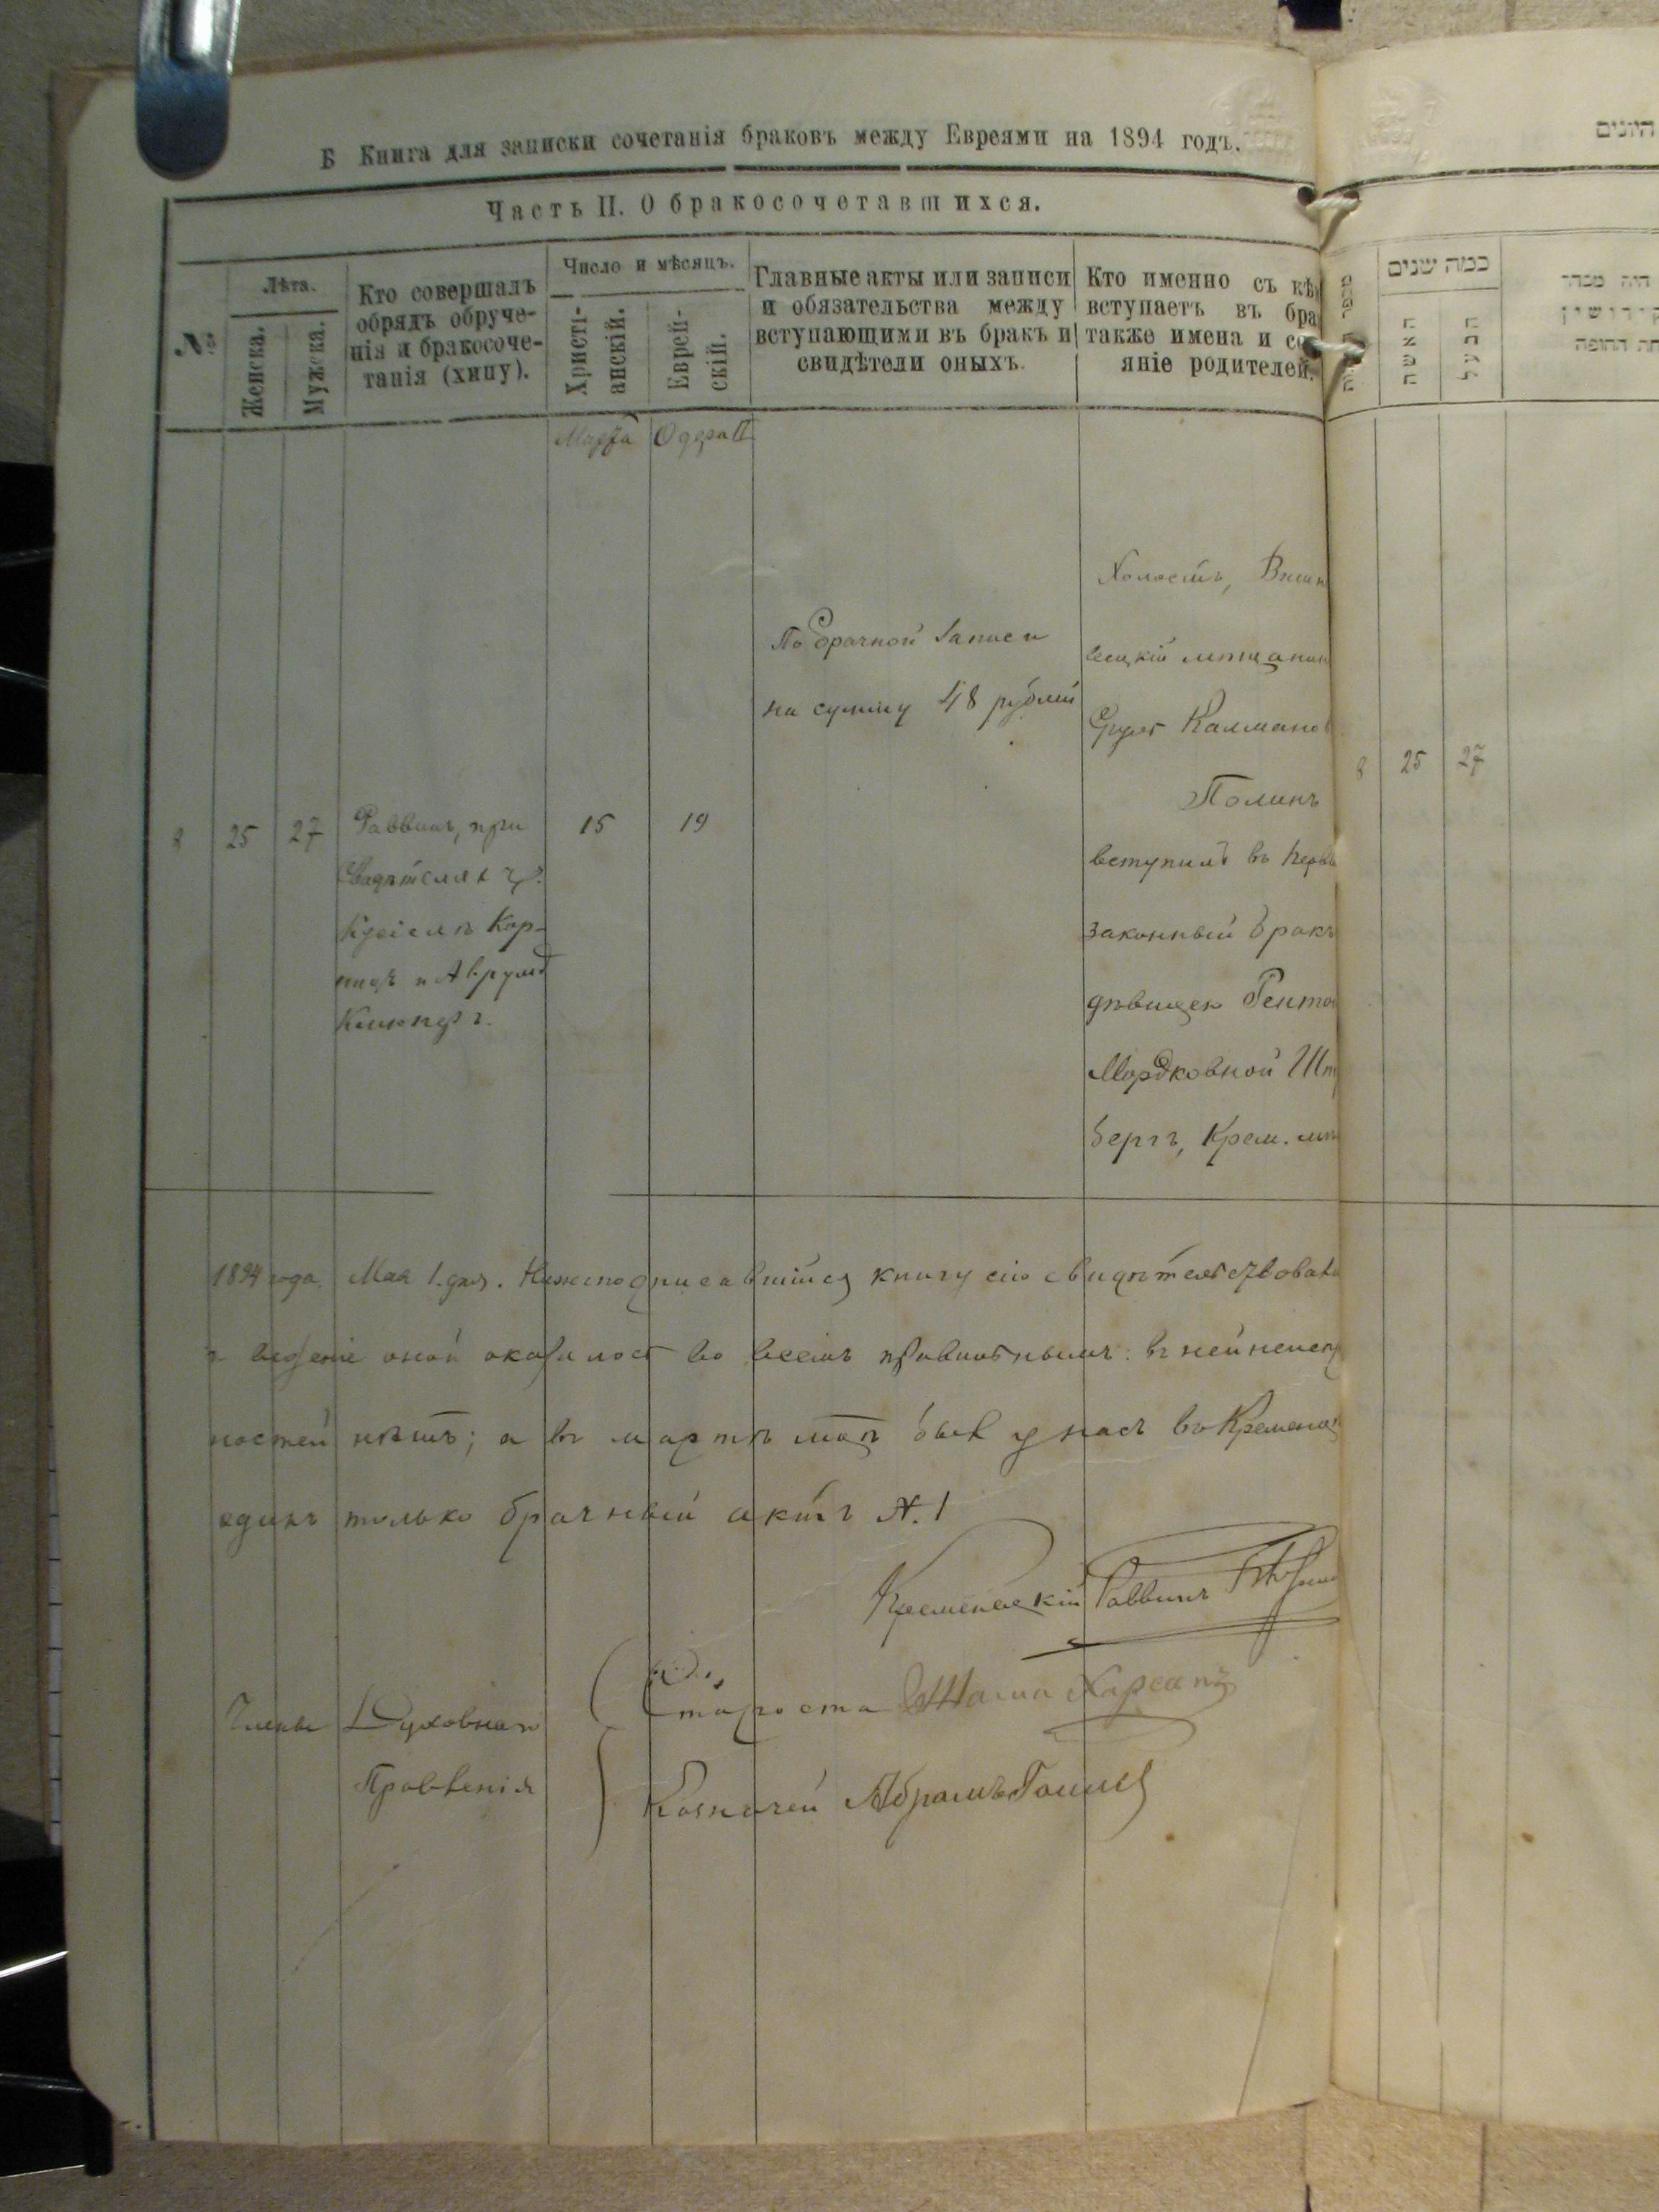 Б Книга для записки сочетанія браковъ между Евреями на 1894 годъ.
Часть II. О бракосочетавшихся.
№
Лѣта.
Женска.
Мужска.
Кто совершалъ
обрядъ обруче-
нія и бракосоче-
танія (хипу).
Число и мѣсяцъ.
Христі-
анскій.
Еврей-
скій.
Главные акты или записи
и обязательства между
вступающими въ бракъ и
свидѣтели оныхъ.
Кто именно съ кѣ
вступаетъ въ бра
также имена и со
яніе родителей.
Марта
Одера II
8
25
27
Раввинъ, при
Свидѣтеляхъ
и Аврумъ
15
19
По брачной записи
на сумму 48 рублей
Холостъ, Вишн
вецкій мѣщанин
Калманов
Полинъ
вступилъ въ перв
законный бракъ
дѣвицею
Мордковной Шт
бергъ, Крем. мѣ
1894 года Мая 1. дня. Нижеподписавшійся книгу сію свидѣтельствовали
веденіе оной оказалось во всемъ правильнымъ: въ ней неиспр
ностей нѣтъ; а въ мартѣ м-цѣ былъ у насъ въ Кременц
одинъ только брачный актъ №. 1
Кременецкій Раввинъ
Члены Духовнаго
Правленія
Староста
Казначей Абрамъ
היונים
כמה שנים
האשה
הבעל
היה מסדר
קידושין
תה החופה
8
25
27